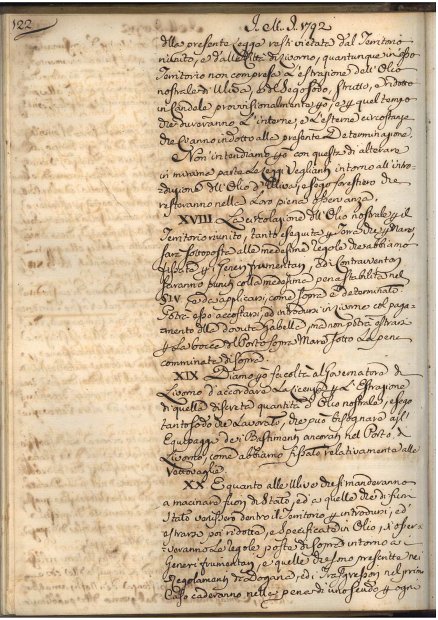 122
J. M. J. 1792
della presente Legge resti vietata dal Territorio
riunito, e dalla Città di Livorno, quantunque in esso
Territorio non compresa L'estrazione dell'Olio
nostrale di Uliva, del Sego sodo, Strutto, e ridotto
in Candele provisionalmente però, e per quel tempo
che dureranno L'interne, e L'esterne circostanze
che ci anno indotto alla presente Determinazione.
Non intendiamo però con questa di alterare
in minima parte Le Leggi Veglianti intorno all'intro-
duzione dell'Olio d'Uliva, e Sego forestiero che
resteranno nella Loro piena osservanza.
XVIII La circolazione dell'Olio nostrale per il
Territorio riunito, tanto eseguita per Terra che per Mare
sarà sottoposta alle medesime regole che abbiamo
per i Generi frumentari, ed i Contraventori
saranno puniti colla medesima pena stabilita nel
XIV da applicarsi, come sopra è determinato.
Potrà esso accostarsi, ed introdursi in Livorno col paga-
mento delle dovute Gabelle, ma non potrà estrarsi
per La bocca del Porto sopra Mare sotto Le pene
comminate di sopra.
XIX Diamo però facoltà al Governatore di
Livorno d'accordare La licenza per L'Estrazione
di quella discreta quantità d'Olio nostrale, e sego
tanto sodo che Lavorato, che può bisognare agl'
Equipaggi de' Bastimenti ancorati nel Porto di
Livorno, come abbiamo fissato relativamente alle
Vettovaglie.
XX E quanto alle Ulive che si manderanno
a macinare fuori di Stato, ed a quelle che di fuori
Stato venissero dentro il Territorio per introdursi, ed
estrarsi poi ridotte, e Specificate in Olio, si osser-
veranno Le regole poste di sopra intorno ai
Generi frumentari, e quelle che sono prescritte nei
Regolamenti di Dogana, ed i Trasgressori nel primo
Caso caderanno nella pena di uno scudo per ogni